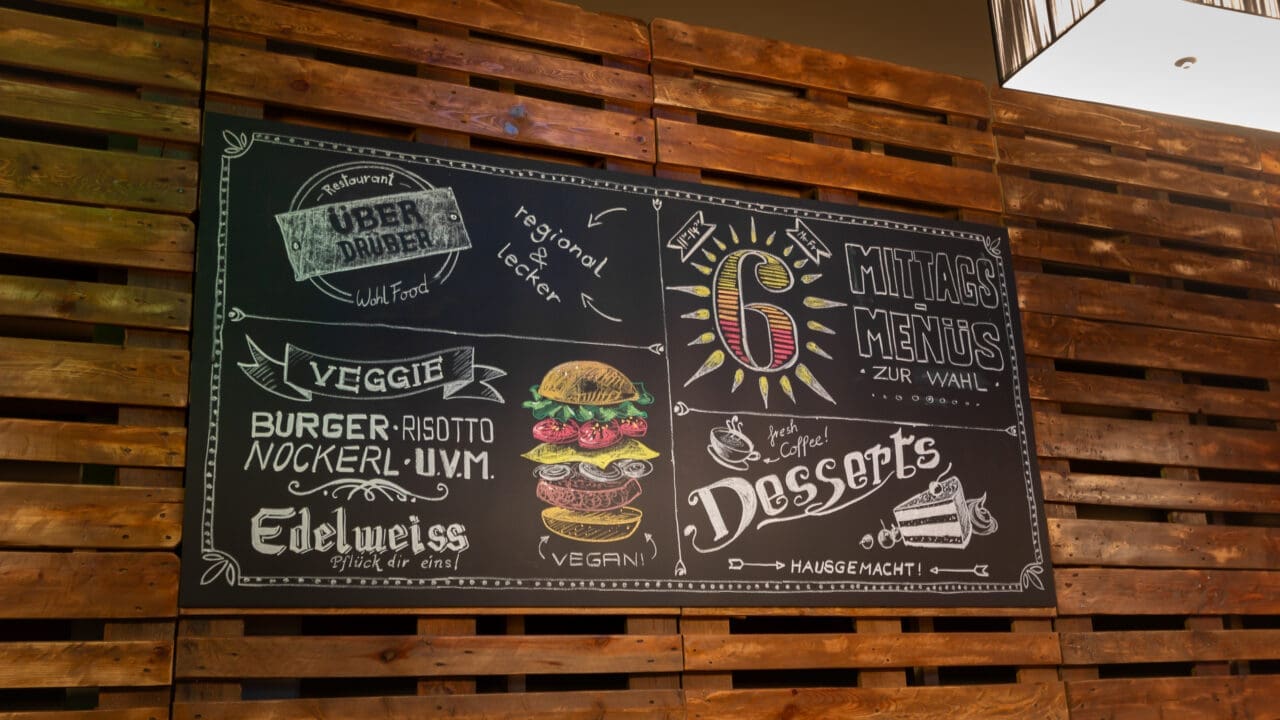 Restaurant
ÜBER
DRÜBER
Wohl Food
regional
&
lecker
VEGGIE
BURGER · RISOTTO
NOCKERL · U.V.M.
Edelweiss
Pflück dir eins!
VEGAN!
6
MITTAGS
-
MENÜS
· ZUR WAHL ·
fresh
Coffee!
Desserts
HAUSGEMACHT!